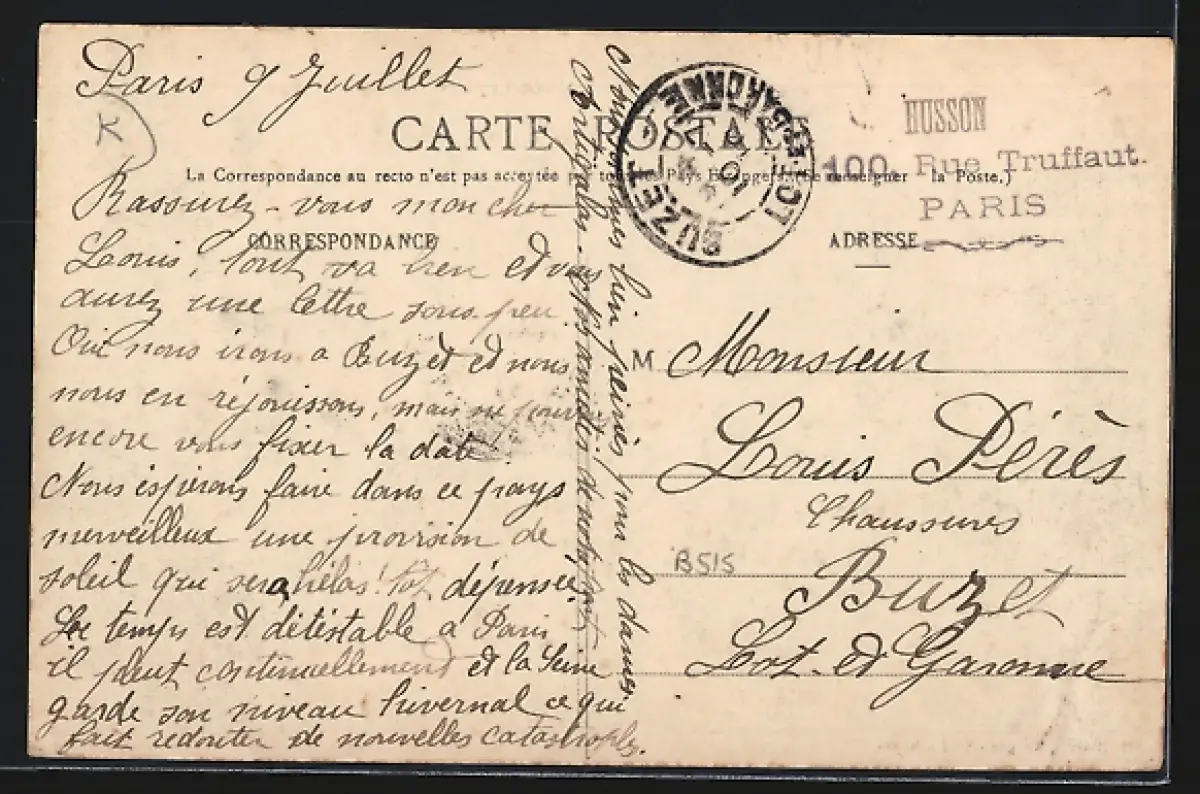 Paris 9 Juillet
K
CARTE POSTALE
La Correspondance au recto n'est pas acceptée par tous les Pays Étrangers (Se renseigner à la Poste.)
CORRESPONDANCE
Rassurez-vous mon cher
Louis, tout va bien et vous
aurez une lettre sous peu
Oui nous irons a Buzet et nous
nous en réjouissons, mais ne
encore vous fixer la date!
Nous espérons faire dans ce pays
merveilleux une provision de
soleil qui sera hélas! tôt dépensée
Le temps est détestable a Paris
il pleut continuellement et la Seine
garde son niveau hivernal ce qui
fait redouter de nouvelles catastrophes.
Nous sommes bien peinés pour les dames
Artigalas - et amitiés de notre part
BUZET
LOT-ET-GARONNE
HUSSON
100, Rue Truffaut.
PARIS
ADRESSE
M Monsieur
Louis Pérès
Chaussures
B515
Buzet
Lot-et-Garonne